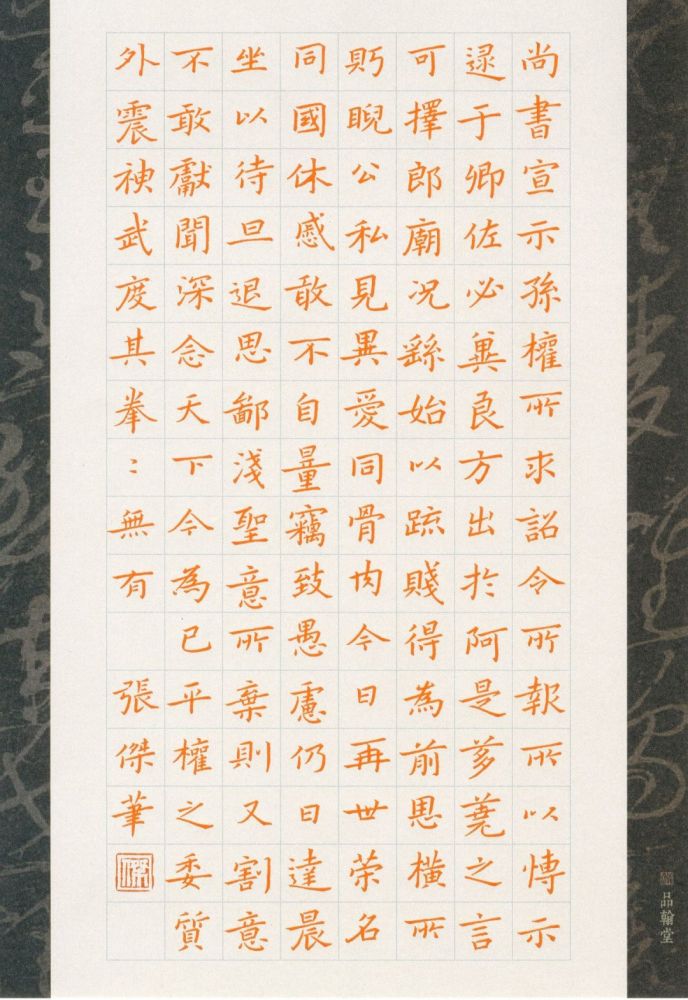 尚書宣示孫權所求詔令所報所以博示
逯于卿佐必冀良方出於阿是芻蕘之言
可擇郎廟况繇始以疏賤得為前恩橫所
眄睨公私見異愛同骨肉今日再世榮名
同國休慼敢不自量竊致愚慮仍日達晨
坐以待旦退思鄙淺聖意所棄則又割意
不敢獻聞深念天下今為已平權之委質
外震神武度其拳〻無有 張傑筆
品翰堂